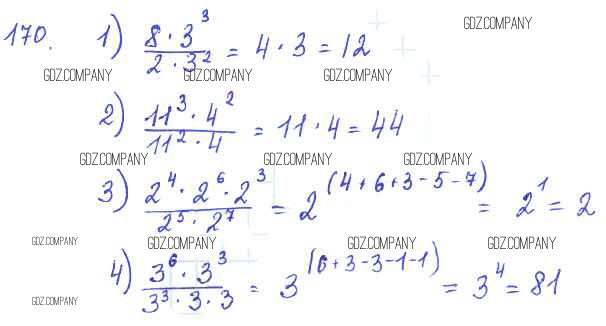 GDZ.COMPANY
170. 1) (8 · 3³)/(2 · 3²) = 4 · 3 = 12
GDZ.COMPANY GDZ.COMPANY GDZ.COMPANY
2) (11³ · 4²)/(11² · 4) = 11 · 4 = 44
GDZ.COMPANY GDZ.COMPANY GDZ.COMPANY
3) (2⁴ · 2⁶ · 2³)/(2⁵ · 2⁷) = 2^(4+6+3-5-7) = 2¹ = 2
GDZ.COMPANY GDZ.COMPANY GDZ.COMPANY GDZ.COMPANY
4) (3⁶ · 3³)/(3³ · 3 · 3) = 3^(6+3-3-1-1) = 3⁴ = 81
GDZ.COMPANY